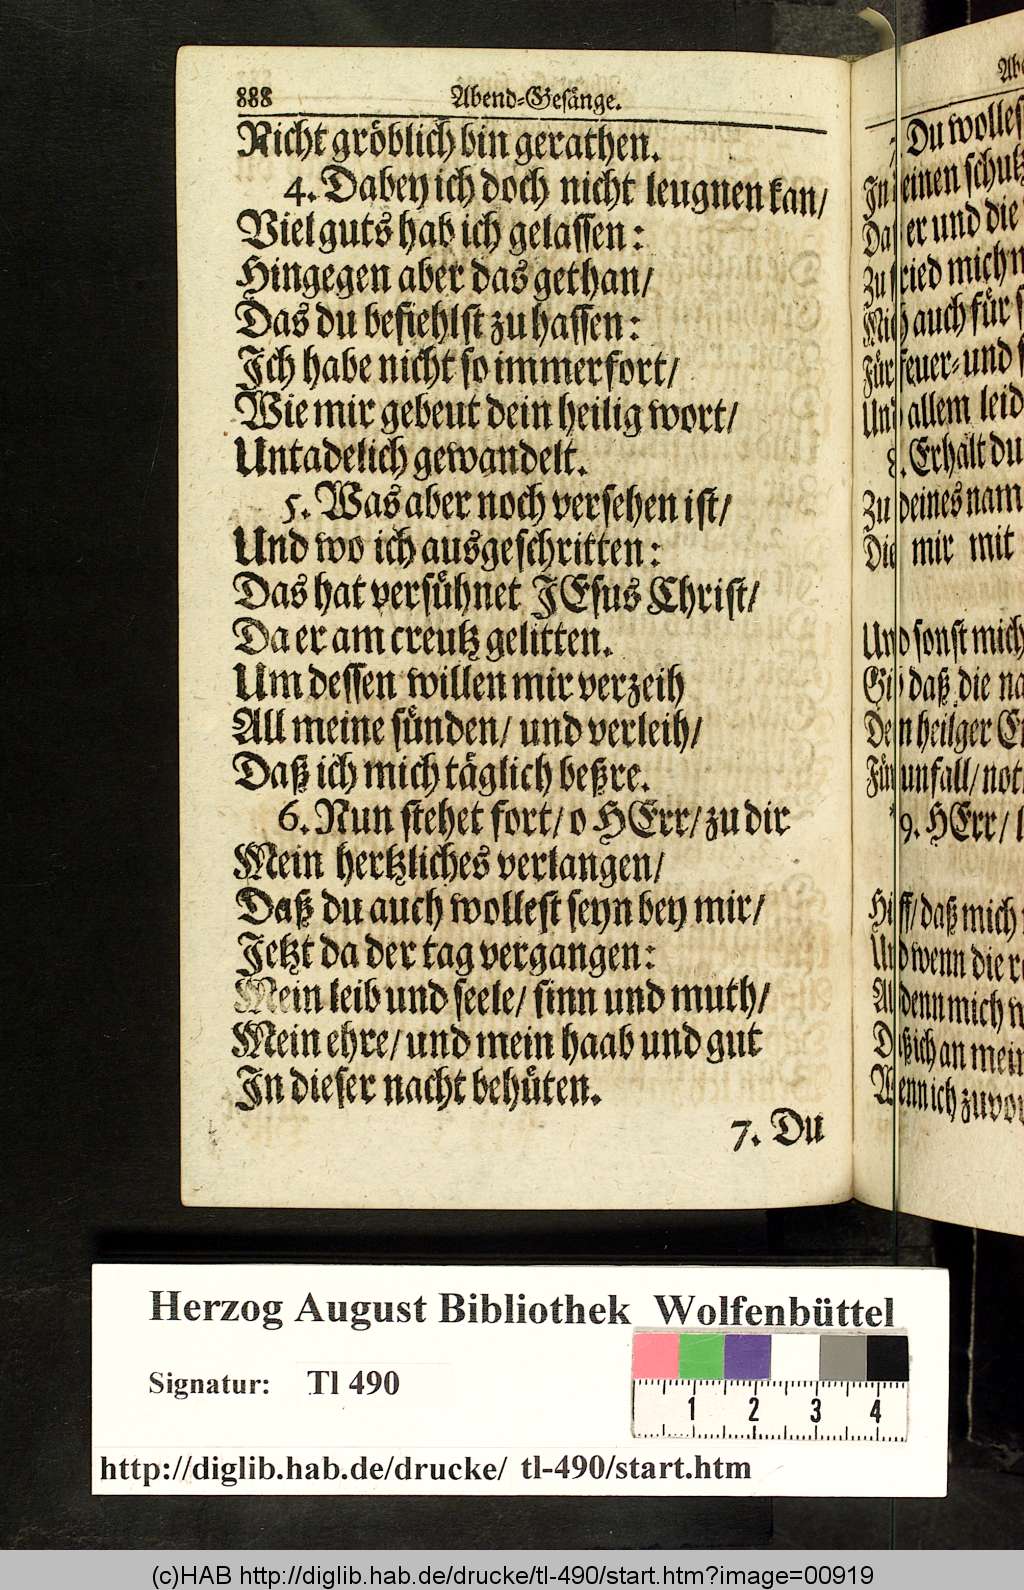 888 Abend-Gesänge.
Nicht gröblich bin gerathen.
4. Dabey ich doch nicht leugnen kan/
Viel guts hab ich gelassen:
Hingegen aber das gethan/
Das du befiehlst zu hassen:
Ich habe nicht so immerfort/
Wie mir gebeut dein heilig wort/
Untadelich gewandelt.
5. Was aber noch versehen ist/
Und wo ich ausgeschritten:
Das hat versühnet JEsus Christ/
Da er am creutz gelitten.
Um dessen willen mir verzeih
All meine sünden/ und verleih/
Daß ich mich täglich beßre.
6. Nun stehet fort/ o HErr/ zu dir
Mein hertzliches verlangen/
Daß du auch wollest seyn bey mir/
Jetzt da der tag vergangen:
Mein leib und seele/ sinn und muth/
Mein ehre/ und mein haab und gut
In dieser nacht behüten.
7. Du
Du wolles
einen schutz
er und die
Zu fried mich
Mich auch für
Für feuer- und
Und allem leid
8. Erhalt du
Zu deines nam
Die mir mit
Und sonst mich
Gib daß die
Dein heilger
Für unfall/ not
9. HErr/
Hilff/ daß mich
Und wenn die
Alsdenn mich
Daß ich an mein
Wenn ich zuvor
Herzog August Bibliothek Wolfenbüttel
Signatur: Tl 490
1 2 3 4
http://diglib.hab.de/drucke/ tl-490/start.htm
(c)HAB http://diglib.hab.de/drucke/tl-490/start.htm?image=00919